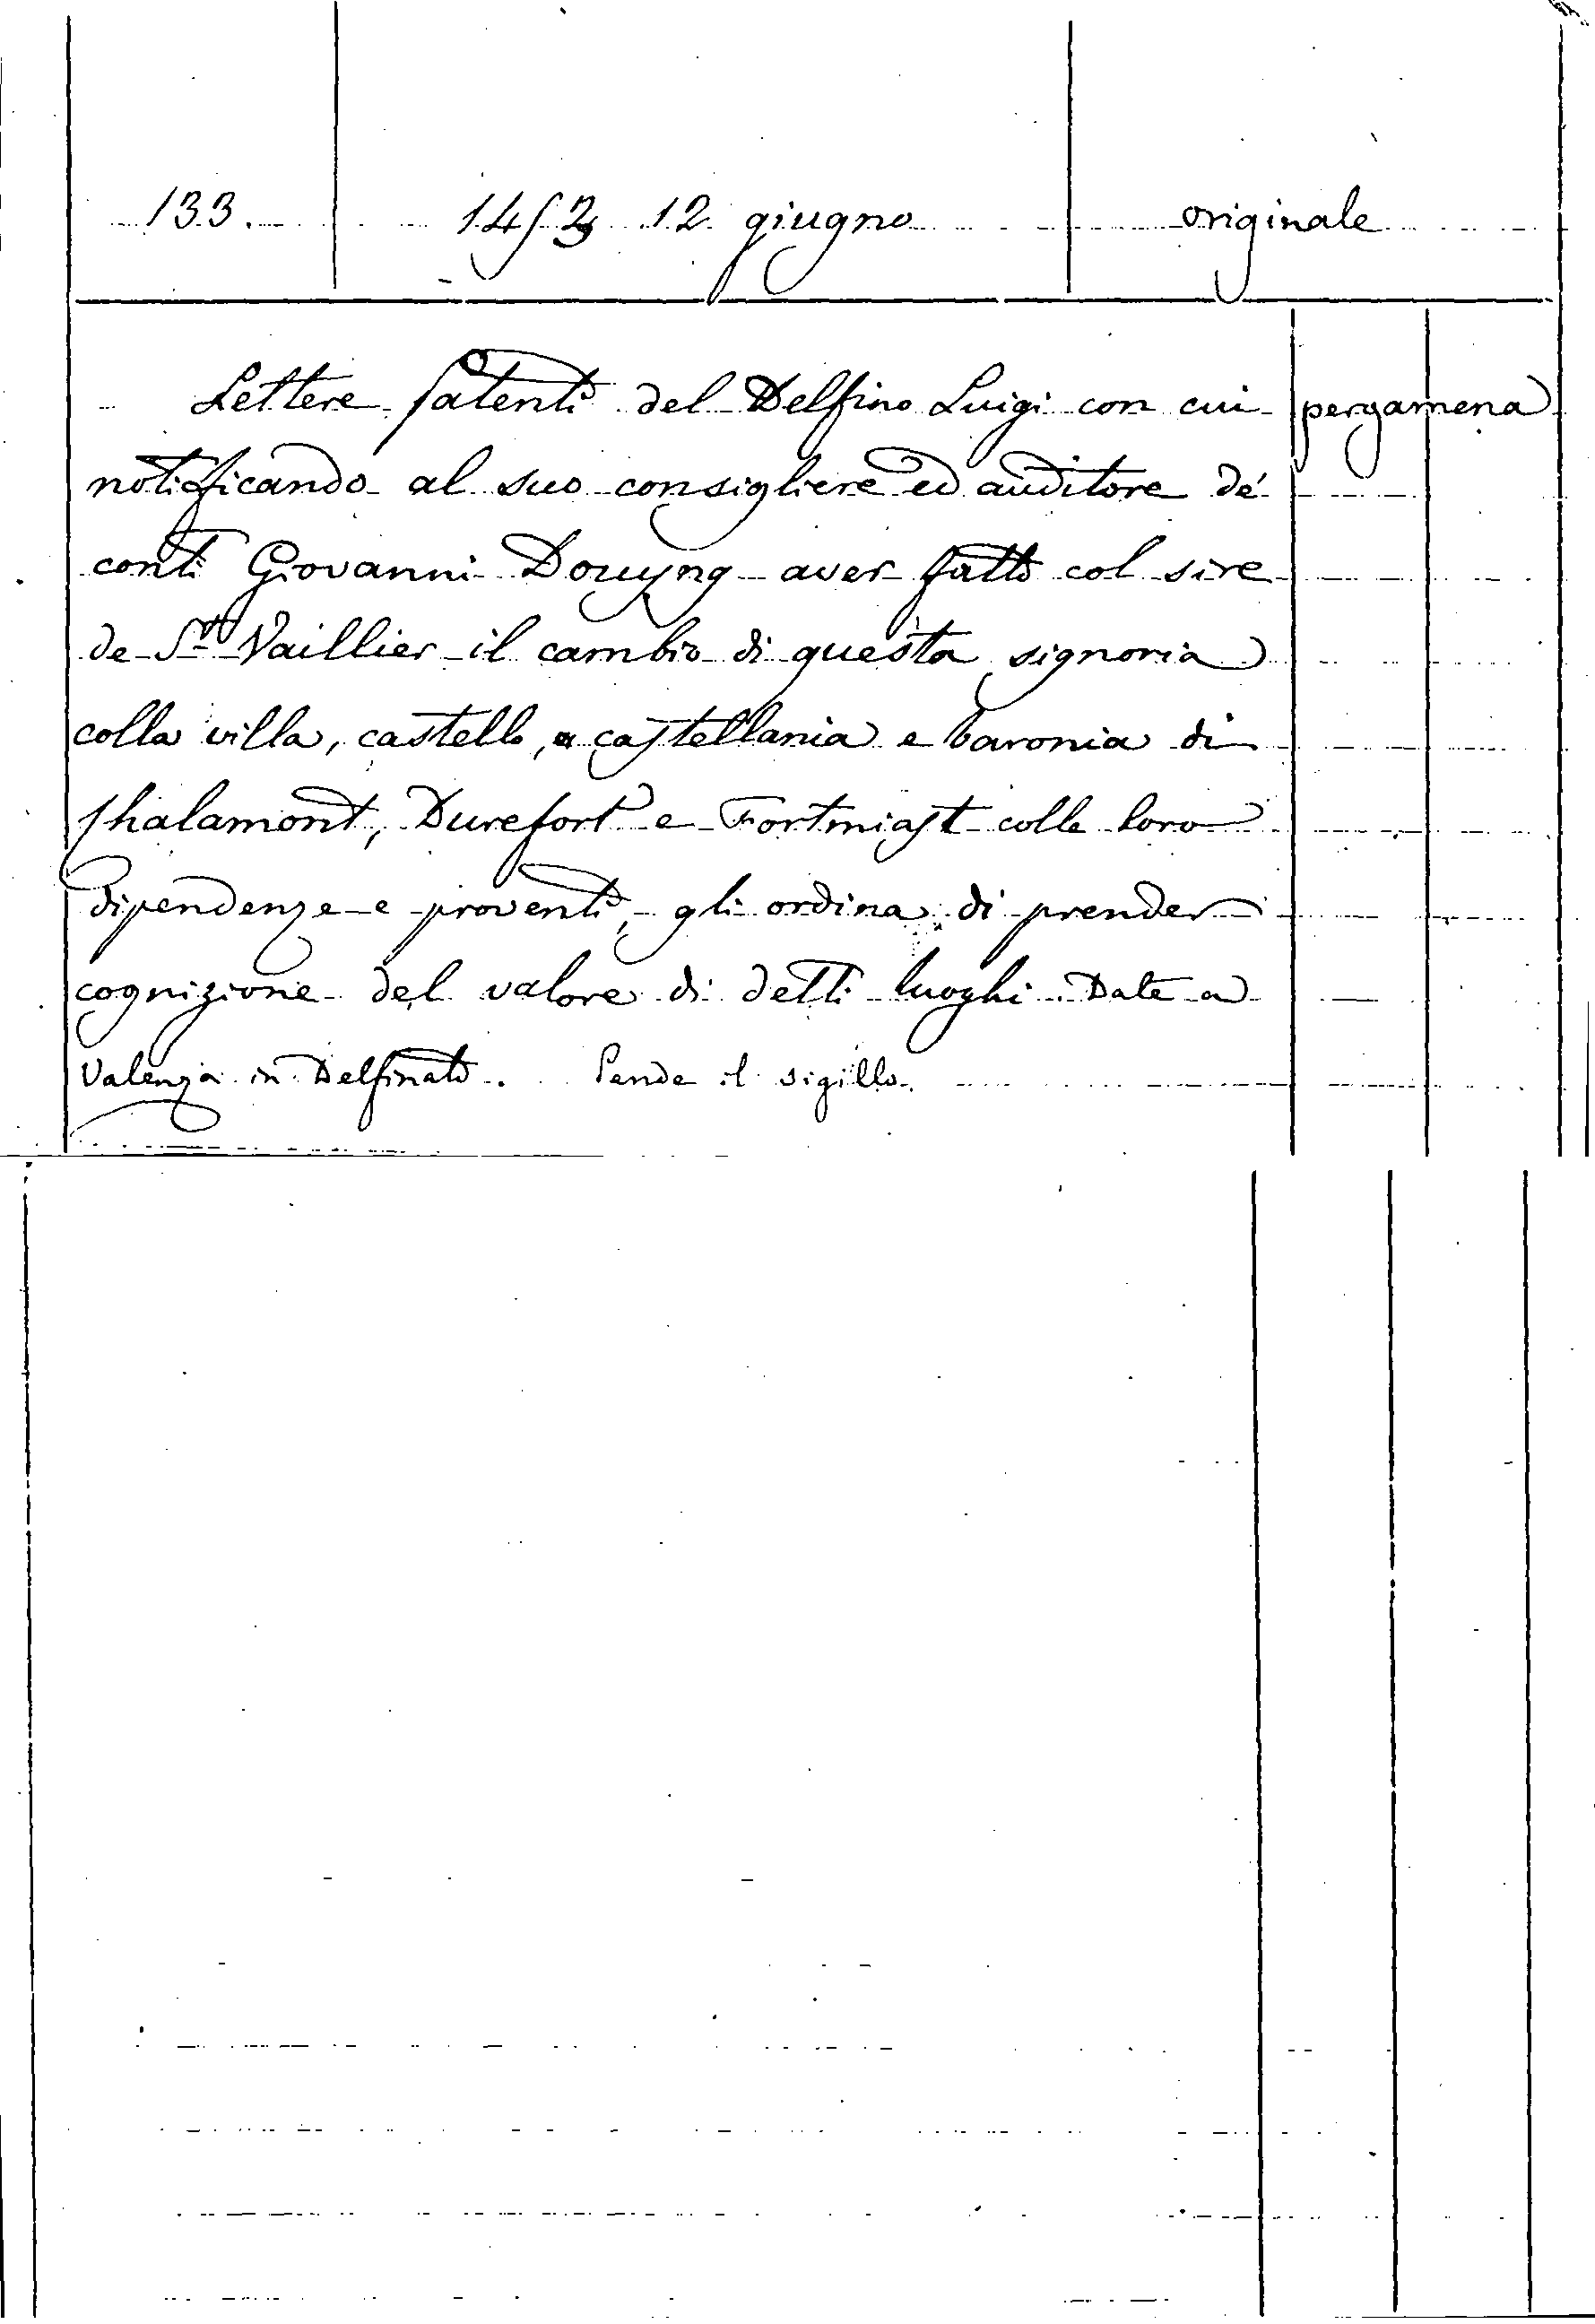 133. 1453 12 giugno originale
Lettere patenti del Delfino Luigi con cui pergamena
notificando al suo consigliere ed auditore de'
conti Giovanni Douyng aver fatto col sire
de St Vaillier il cambio di questa signoria
colla villa, castello, castellania e baronia di
Chalamont, Durefort e Fortmiast colle loro
dipendenze e proventi, gli ordina di prender
cognizione del valore di detti luoghi. Date a
Valenza in Delfinato. Pende il sigillo.